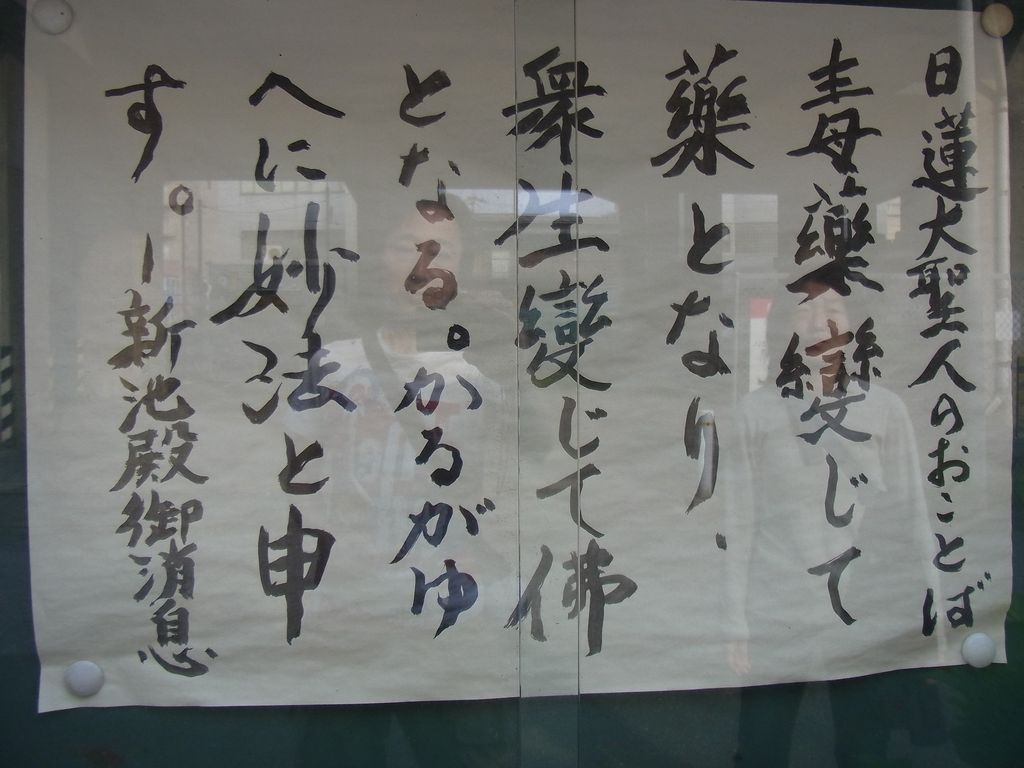 日蓮大聖人のおことば
毒藥變じて
藥となり、
衆生變じて佛
となる。かるがゆ
へに妙法と申
す。ー新池殿御消息